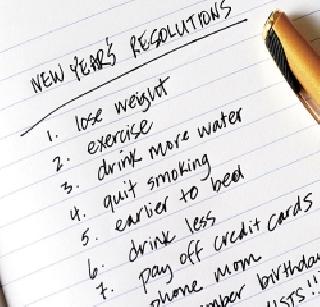 NEW YEAR'S RESOLUTIONS
1. lose weight
2. exercise
3. drink more water
4. quit smoking
5. earlier to bed
6. drink less
7. pay off credit cards
phone mom